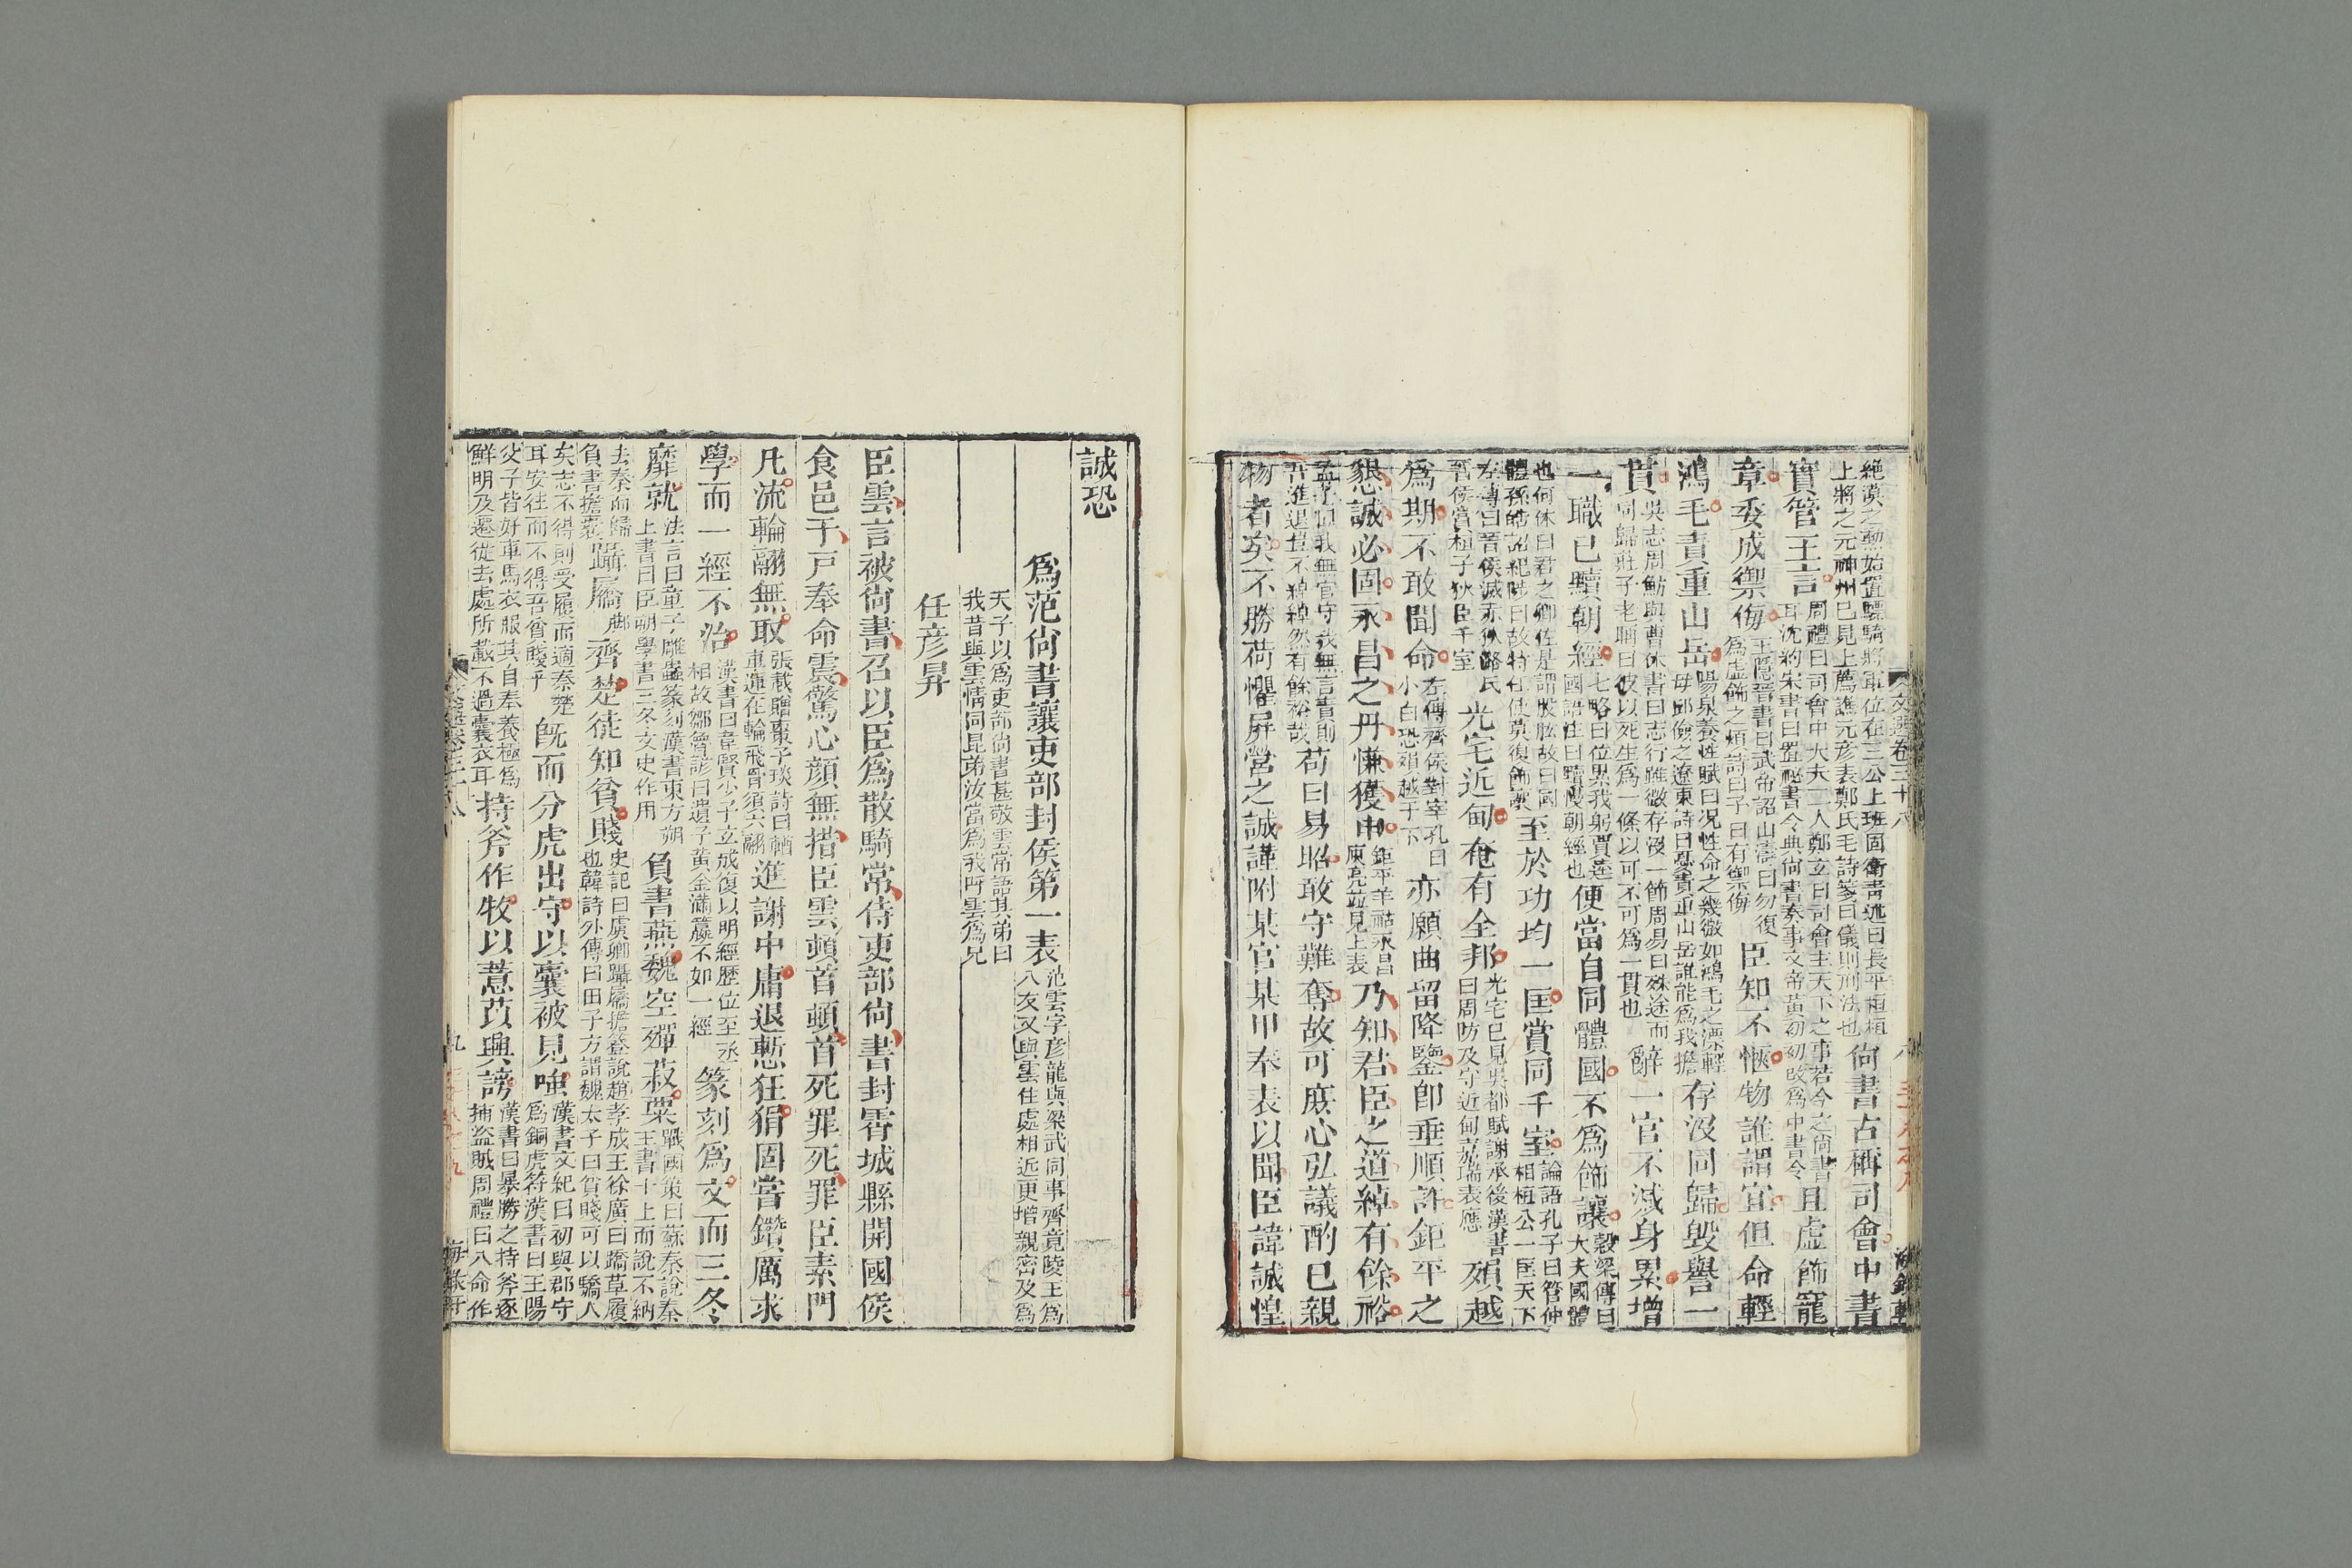 絶漠之勳始置驃騎將軍位在三公上班固衛青述曰長平桓桓
上將之元神主已見上薦譙元彦表鄭氏毛詩箋曰儀則刑法也
尚書古稱司會中書
實管王言
周禮曰司會中大夫二人鄭玄曰司會主天下之事若今之尚書
耳沈約宋書曰置秘書令典尚書奏事文帝黄初初改爲中書令
且虚飾寵
章委成禦侮
王隱晉書曰武帝詔山濤曰勿復
爲虚飾之煩詩曰予曰有禦侮
臣知不愜物誰謂宜但命輕
鴻毛責重山岳
陽泉養性賦曰况性命之幾微如鴻毛之漂輕
毋丘儉之遼東詩曰憂責重山岳誰能爲我擔
存没同歸毁譽一
貫
吳志周魴與曹休書曰志行雖微存没一節周易曰殊途而
同歸莊子老聃曰彼以死生爲一條以可不可爲一貫也
辭一官不減身累增
一職已黷朝經
七略曰位累我躬賈逵
國語注曰黷慢朝經也
便當自同體國不爲飾讓
穀梁傳曰
大夫國體
也何休曰君之卿佐是謂股肱故曰國
體孫皓詔紀陟曰故特任使莫復飾讓
至於功均一匡賞同千室
論語孔子曰管仲
相桓公一匡天下
左傳曰晉侯滅赤狄潞氏
晉侯賞桓子狄臣千室
光宅近甸奄有全邦
光宅已見吳都賦謝承後漢書
曰周防及守近甸嘉瑞表應
殞越
爲期不敢聞命
左傳齊侯對宰孔曰
小白恐殞越于下
亦願曲留降鑒卽垂順許鉅平之
懇誠必固永昌之丹慊獲申
鉅平羊祜永昌
庾亮竝見上表
乃知君臣之道綽有餘裕
孟子曰我無官守我無言責則
吾進退豈不綽綽然有餘裕哉
苟曰易昭敢守難奪故可庶心弘議酌已親
物者矣不勝荷懼屏營之誠謹附某官某甲奉表以聞臣諱誠惶
誠恐
爲范尚書讓吏部封侯第一表
范雲字彦龍與梁武同事齊竟陵王爲
八友又與雲住處相近更增親密及爲
天子以爲吏部尚書甚敬雲常語其弟曰
我昔與雲情同昆弟汝當爲我呼雲爲兄
任彦昇
臣雲言被尚書召以臣爲散騎常侍吏部尚書封霄城縣開國侯
食邑千戸奉命震驚心顔無措臣雲頓首頓首死罪死罪臣素門
凡流輪翮無取
張載贈棗子琰詩曰輶
車運在輪飛骨須六翮
進謝中庸退慙狂狷固嘗鑽厲求
學而一經不治
漢書曰韋賢少子玄成復以明經歴位至丞
相故鄒魯諺曰遺子黄金滿籝不如一經
篆刻爲文而三冬
靡就
法言曰童子雕蟲篆刻漢書東方朔
上書曰臣朔學書三冬文史作用
負書燕魏空殫菽粟
戰國策曰蘇秦說秦
王書十上而說不納
去秦而歸
負書擔囊
躡屩
脚
齊楚徒知貧賤
史記曰虞卿躡屩擔簦說趙孝成王徐廣曰蹻草履
也韓詩外傳曰田子方謂魏太子曰貧賤可以驕人
矣志不得則受履而適秦楚
耳安往而不得吾貧賤乎
旣而分虎出守以囊被見嗤
漢書文紀曰初與郡守
爲銅虎符漢書曰王陽
父子皆好車馬衣服其自奉養極爲
鮮明及遷徙去處所載不過囊衣耳
持斧作牧以薏苡興謗
漢書曰暴勝之持斧逐
捕盜賊周禮曰八命作
文選卷三十八
八
海錄軒
文選卷三十八
九
海錄軒